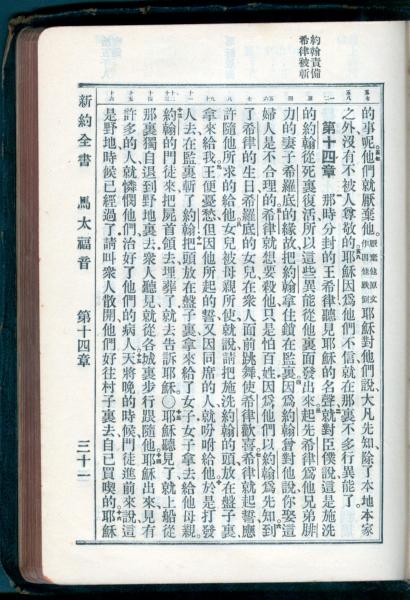 約翰責備
希律被斬
的事呢他們就厭棄他。厭棄他原文作因他跌倒耶穌對他們說、大凡先知除了本地本家
之外、沒有不被人尊敬的。耶穌因爲他們不信、就在那裏不多行異能了。
第十四章 那時分封的王希律聽見耶穌的名聲、就對臣僕說、這是施洗
的約翰從死裏復活、所以這些異能從他裏面發出來。起先希律爲他兄弟腓
力的妻子希羅底的緣故、把約翰拿住鎖在監裏。因爲約翰曾對他說、你娶這
婦人是不合理的。希律就想要殺他、只是怕百姓因爲他們以約翰爲先知。到
了希律的生日、希羅底的女兒在衆人面前跳舞、使希律歡喜。希律就起誓應
許隨他所求的給他。女兒被母親所使、就說、請把施洗約翰的頭放在盤子裏、
拿來給我。王便憂愁、但因他所起的誓、又因同席的人、就吩咐給他。於是打發
人去、在監裏斬了約翰。把頭放在盤子裏、拿來給了女子、女子拿去給他母親。
約翰的門徒來把屍首領去埋葬了、就去告訴耶穌。○耶穌聽見了、就上船從
那裏獨自退到野地裏去、衆人聽見、就從各城裏步行跟隨他。耶穌出來、見有
許多的人、就憐憫他們、治好了他們的病人。天將晚的時候、門徒進前來說、這
是野地、時候已經過了、請叫衆人散開、他們好往村子裏去、自己買喫的。耶穌
新約全書 馬太福音 第十四章 三十二